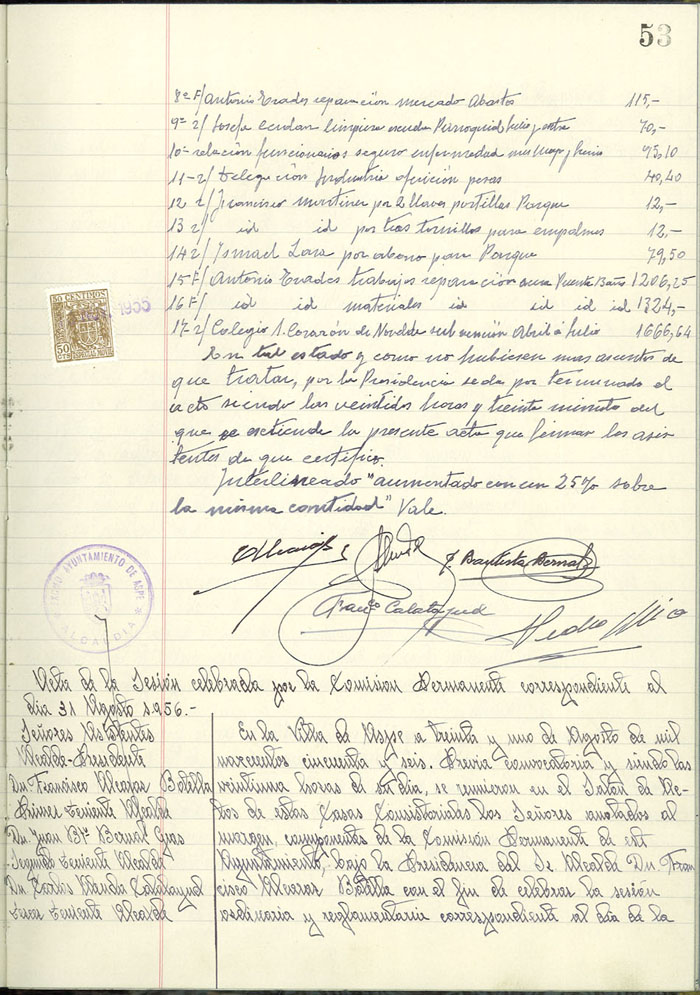 53
8º F/ Antonio Prades reparación mercado Abastos 115,-
9º 2/ Josefa limpieza escuela Parroquial Julio y 70,-
10º- relación funcionarios seguro enfermedad mes Mayo y Junio 95,10
11-2/ Delegación Industria afección pesas 40,40
12 2/ Francisco Martinez por 2 llaves portillas Parque 12,-
13 2/ id id por tres tornillos para empalmes 12,-
14 2/ Ismael Lara por abono para Parque 79,50
15 F/ Antonio Prades trabajos reparación Puente Baño 1206,25
16 F/ id id materiales id id id id 1324,-
17-2/ Colegio S. Corazón de Novelda subvención Abril á Julio 1666,64
En tal estado y como no hubiesen mas asuntos de
que tratar, por la Presidencia se da por terminado el
acto siendo las veintidos horas y treinta minutos del
que se extiende la presente acta que firman los asis
tentes de que certifico.
Interlineado "aumentado con un 25% sobre
la misma cantidad" Vale.
50 CENTIMOS
50 CTS
1955
AYUNTAMIENTO DE ASPE
ALCALDIA
J. Bautista Bernal
Franco Calatayud
Pedro Mico
Acta de la Sesión celebrada por la Comision Permanente correspondiente al
dia 31 Agosto 1.956.-
Señores Asistentes
Alcalde-Presidente
Dn. Francisco Alcaraz Botella
Primer Teniente Alcalde
Dn. Juan Bta Bernal Gras
Segundo Teniente Alcalde
Dn. Carlos Calatayud
Tercer Teniente Alcalde
En la Villa de Aspe a treinta y uno de Agosto de mil
novecientos cincuenta y seis. Previa convocatoria y siendo las
veintiuna horas de su dia, se reunieron en el Salón de Ac-
tos de estas Casas Consistoriales los Señores anotados al
margen, componentes de la Comisión Permanente de este
Ayuntamiento, bajo la Presidencia del Sr. Alcalde Dn. Fran
cisco Alcaraz Botella con el fin de celebrar la sesión
ordinaria y reglamentaria correspondiente al dia de la